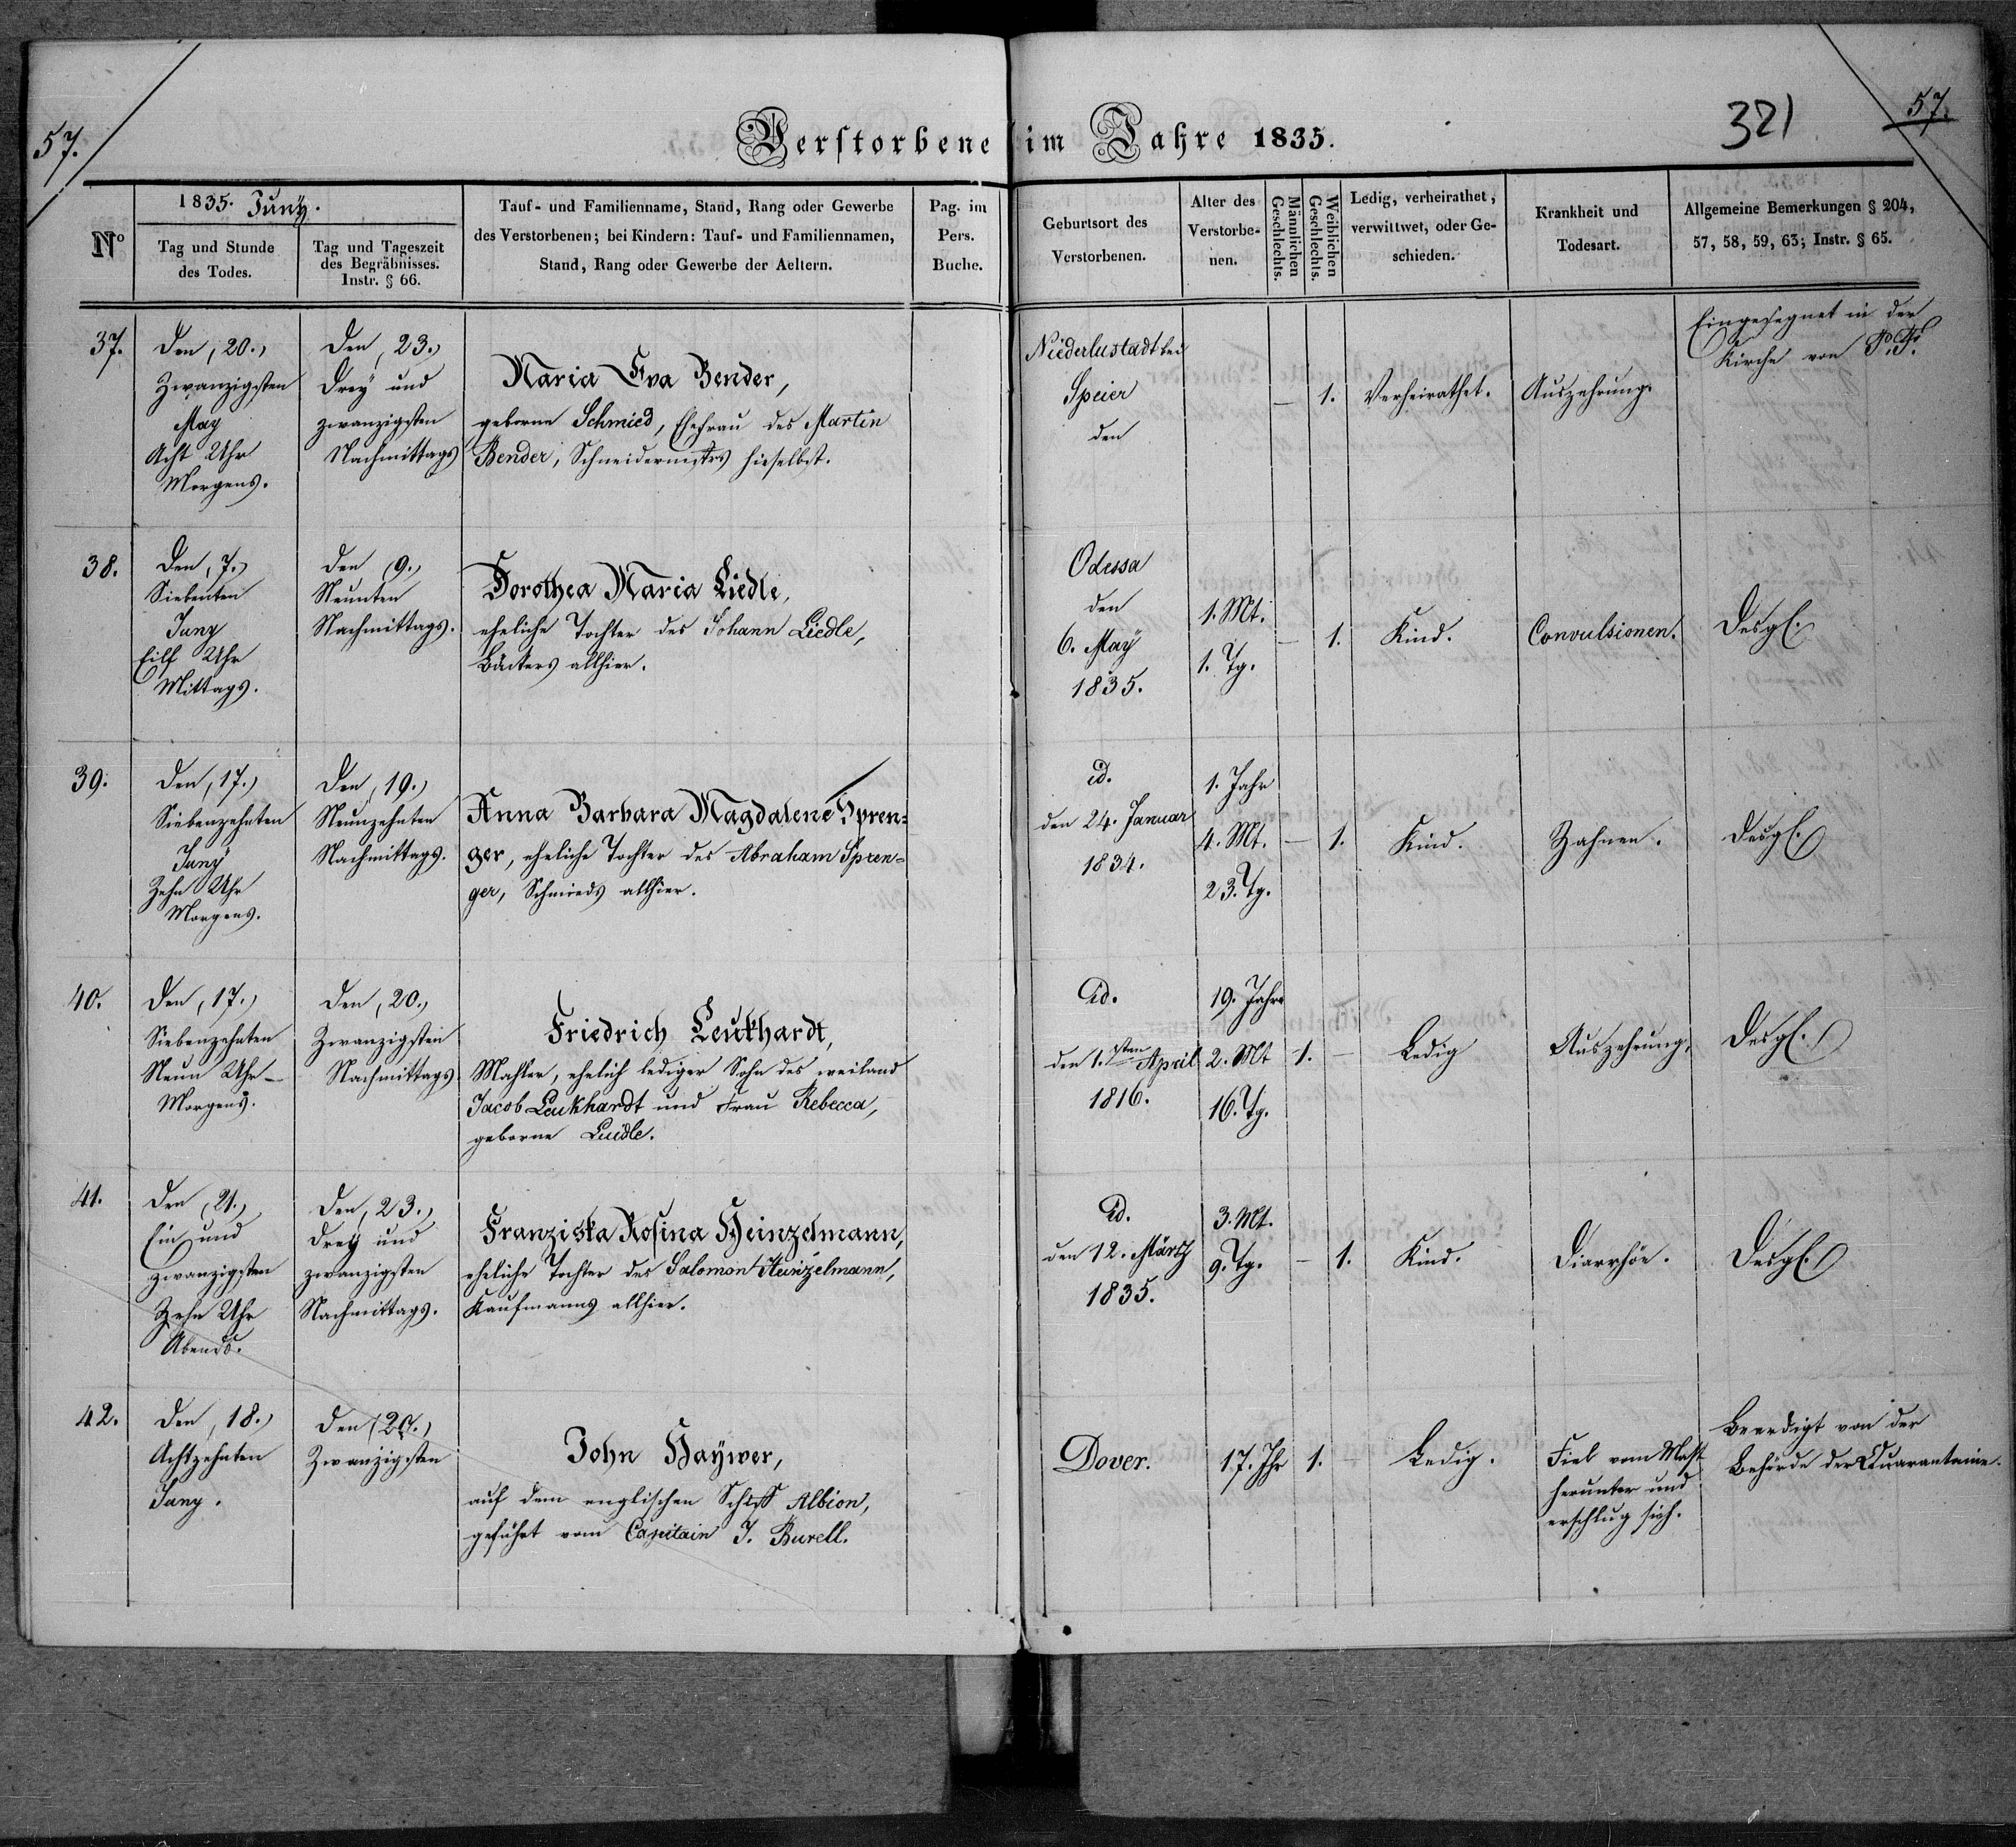 57.
Verstorbene im Jahre 1835.
321
57.
No
1835. Juny.
Tag und Stunde
des Todes.
Tag und Tageszeit
des Begräbnisses.
Instr. § 66.
Tauf- und Familienname, Stand, Rang oder Gewerbe
des Verstorbenen; bei Kindern: Tauf- und Familiennamen,
Stand, Rang oder Gewerbe der Aeltern.
Pag. im
Pers.
Buche.
Geburtsort des
Verstorbenen.
Alter des
Verstorbe-
nen.
Männlichen
Geschlechts.
Weiblichen
Geschlechts.
Ledig, verheirathet,
verwittwet, oder Ge-
schieden.
Krankheit und
Todesart.
Allgemeine Bemerkungen § 204,
57, 58, 59, 63; Instr. § 65.
37.
Den, 20.,
Zwanzigsten
May
Acht Uhr
Morgens.
Den, 23.,
Drey und
zwanzigsten
Nachmittags
Maria Eva Bender,
geborne Schmied, Ehefrau des Martin
Bender, Schneidermstrs hieselbst.
Niederlustadt bei
Speier
den
— 1.
Verheirathet.
Auszehrung.
Eingesegnet in der
Kirche von
38.
Den, 7.,
Siebenten
Juny
Eilf Uhr
Mittags.
Den (9.,
Neunten
Nachmittags.
Dorothea Maria Liedle,
eheliche Tochter des Johann Liedle,
Bäckers allhier.
Odessa
den
6. May
1835.
1. Mt.
1. Tg.
— 1.
Kind.
Convulsionen.
Desgl.
39.
Den, 17.,
Siebenzehnten
Juny
Zehn Uhr
Morgens.
Den, 19.,
Neunzehnten
Nachmittags.
Anna Barbara Magdalene Spren=
ger, eheliche Tochter des Abraham Spren=
ger, Schmieds allhier.
id.
den 24. Januar
1834.
1. Jahr
4. Mt.
23. Tg.
— 1.
Kind.
Zahnen.
Desgl.
40.
Den, 17.,
Siebenzehnten
Neun Uhr —
Morgens.
Den, 20.,
Zwanzigsten
Nachmittags
Friedrich Leukhardt,
Mahler, ehelich lediger Sohn des weiland
Jacob Leukhardt und Frau Rebecca,
geborne
id.
den 1. sten April
1816.
19. Jahre
2. Mt
16. Tg.
1. —
Ledig
Auszehrung.
Desgl.
41.
Den (21.,
Ein und
zwanzigsten
Zehn Uhr
Abends.
Den, 23.,
Drey und
zwanzigsten
Nachmittags.
Franziska Rosina Heinzelmann,
eheliche Tochter des Salomon Heinzelmann,
Kaufmanns allhier.
id.
den 12. Märtz
1835.
3. Mt.
9. Tg.
— 1.
Kind.
Diarrhöe.
Desgl.
42.
Den, 18.,
Achtzehnten
Juny.
Den (20.,
Zwanzigsten
John Haywer,
auf dem englischen Schiff Albion,
geführt vom Capitain J. Burell.
Dover.
17. Jhr
1. —
Ledig.
Fiel vom Mast
herunter und
erschlug sich.
Beerdigt von der
Behörde der Quarantaine.